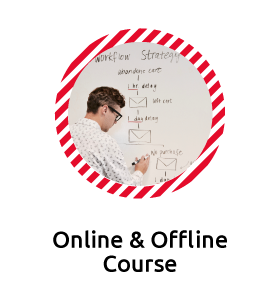 Workflow Strategy
abandone cart
1 hr. delay
1 day delay
no purchase
1 da
Online & Offline
Course